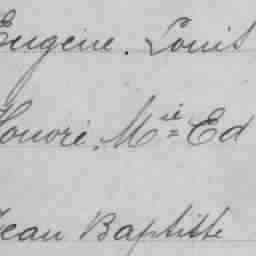 Eugène. Louis
Honoré. Mie = Ed
Jean Baptiste